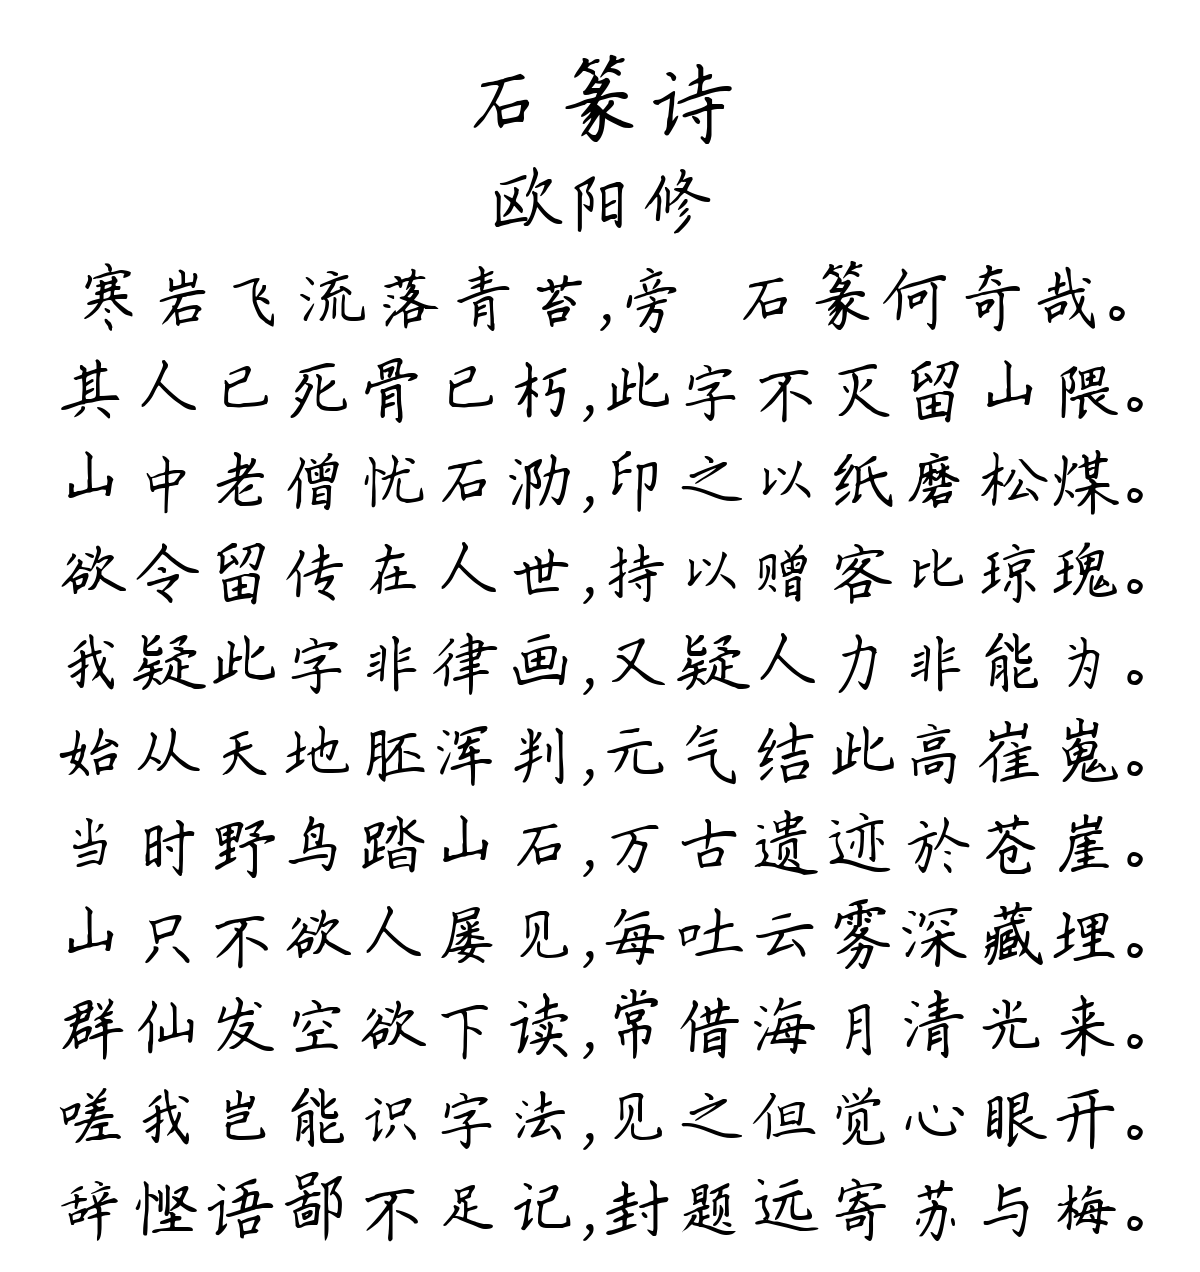 石篆诗
欧阳修
寒岩飞流落青苔,旁 石篆何奇哉。
其人已死骨已朽,此字不灭留山隈。
山中老僧忧石泐,印之以纸磨松煤。
欲令留传在人世,持以赠客比琼瑰。
我疑此字非律画,又疑人力非能为。
始从天地胚浑判,元气结此高崔嵬。
当时野鸟踏山石,万古遗迹於苍崖。
山只不欲人屡见,每吐云雾深藏埋。
群仙发空欲下读,常借海月清光来。
嗟我岂能识字法,见之但觉心眼开。
辞悭语鄙不足记,封题远寄苏与梅。